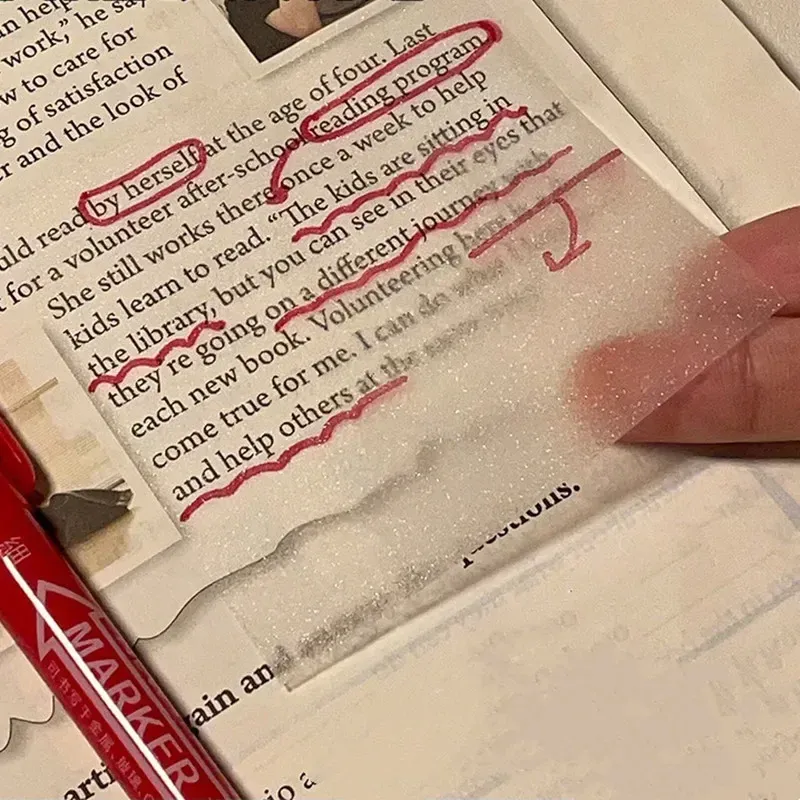 an help
work," he say
w to care for
g of satisfaction
r and the look of
uld read by herself at the age of four. Last
t for a volunteer after-school reading program.
She still works there once a week to help
kids learn to read. "The kids are sitting in
the library, but you can see in their eyes that
they're going on a different journey with
each new book. Volunteering here is
come true for me. I can do what I
and help others at the same time
questions.
gain and
arti
io a
細
MARKER
可书写于金属、玻璃